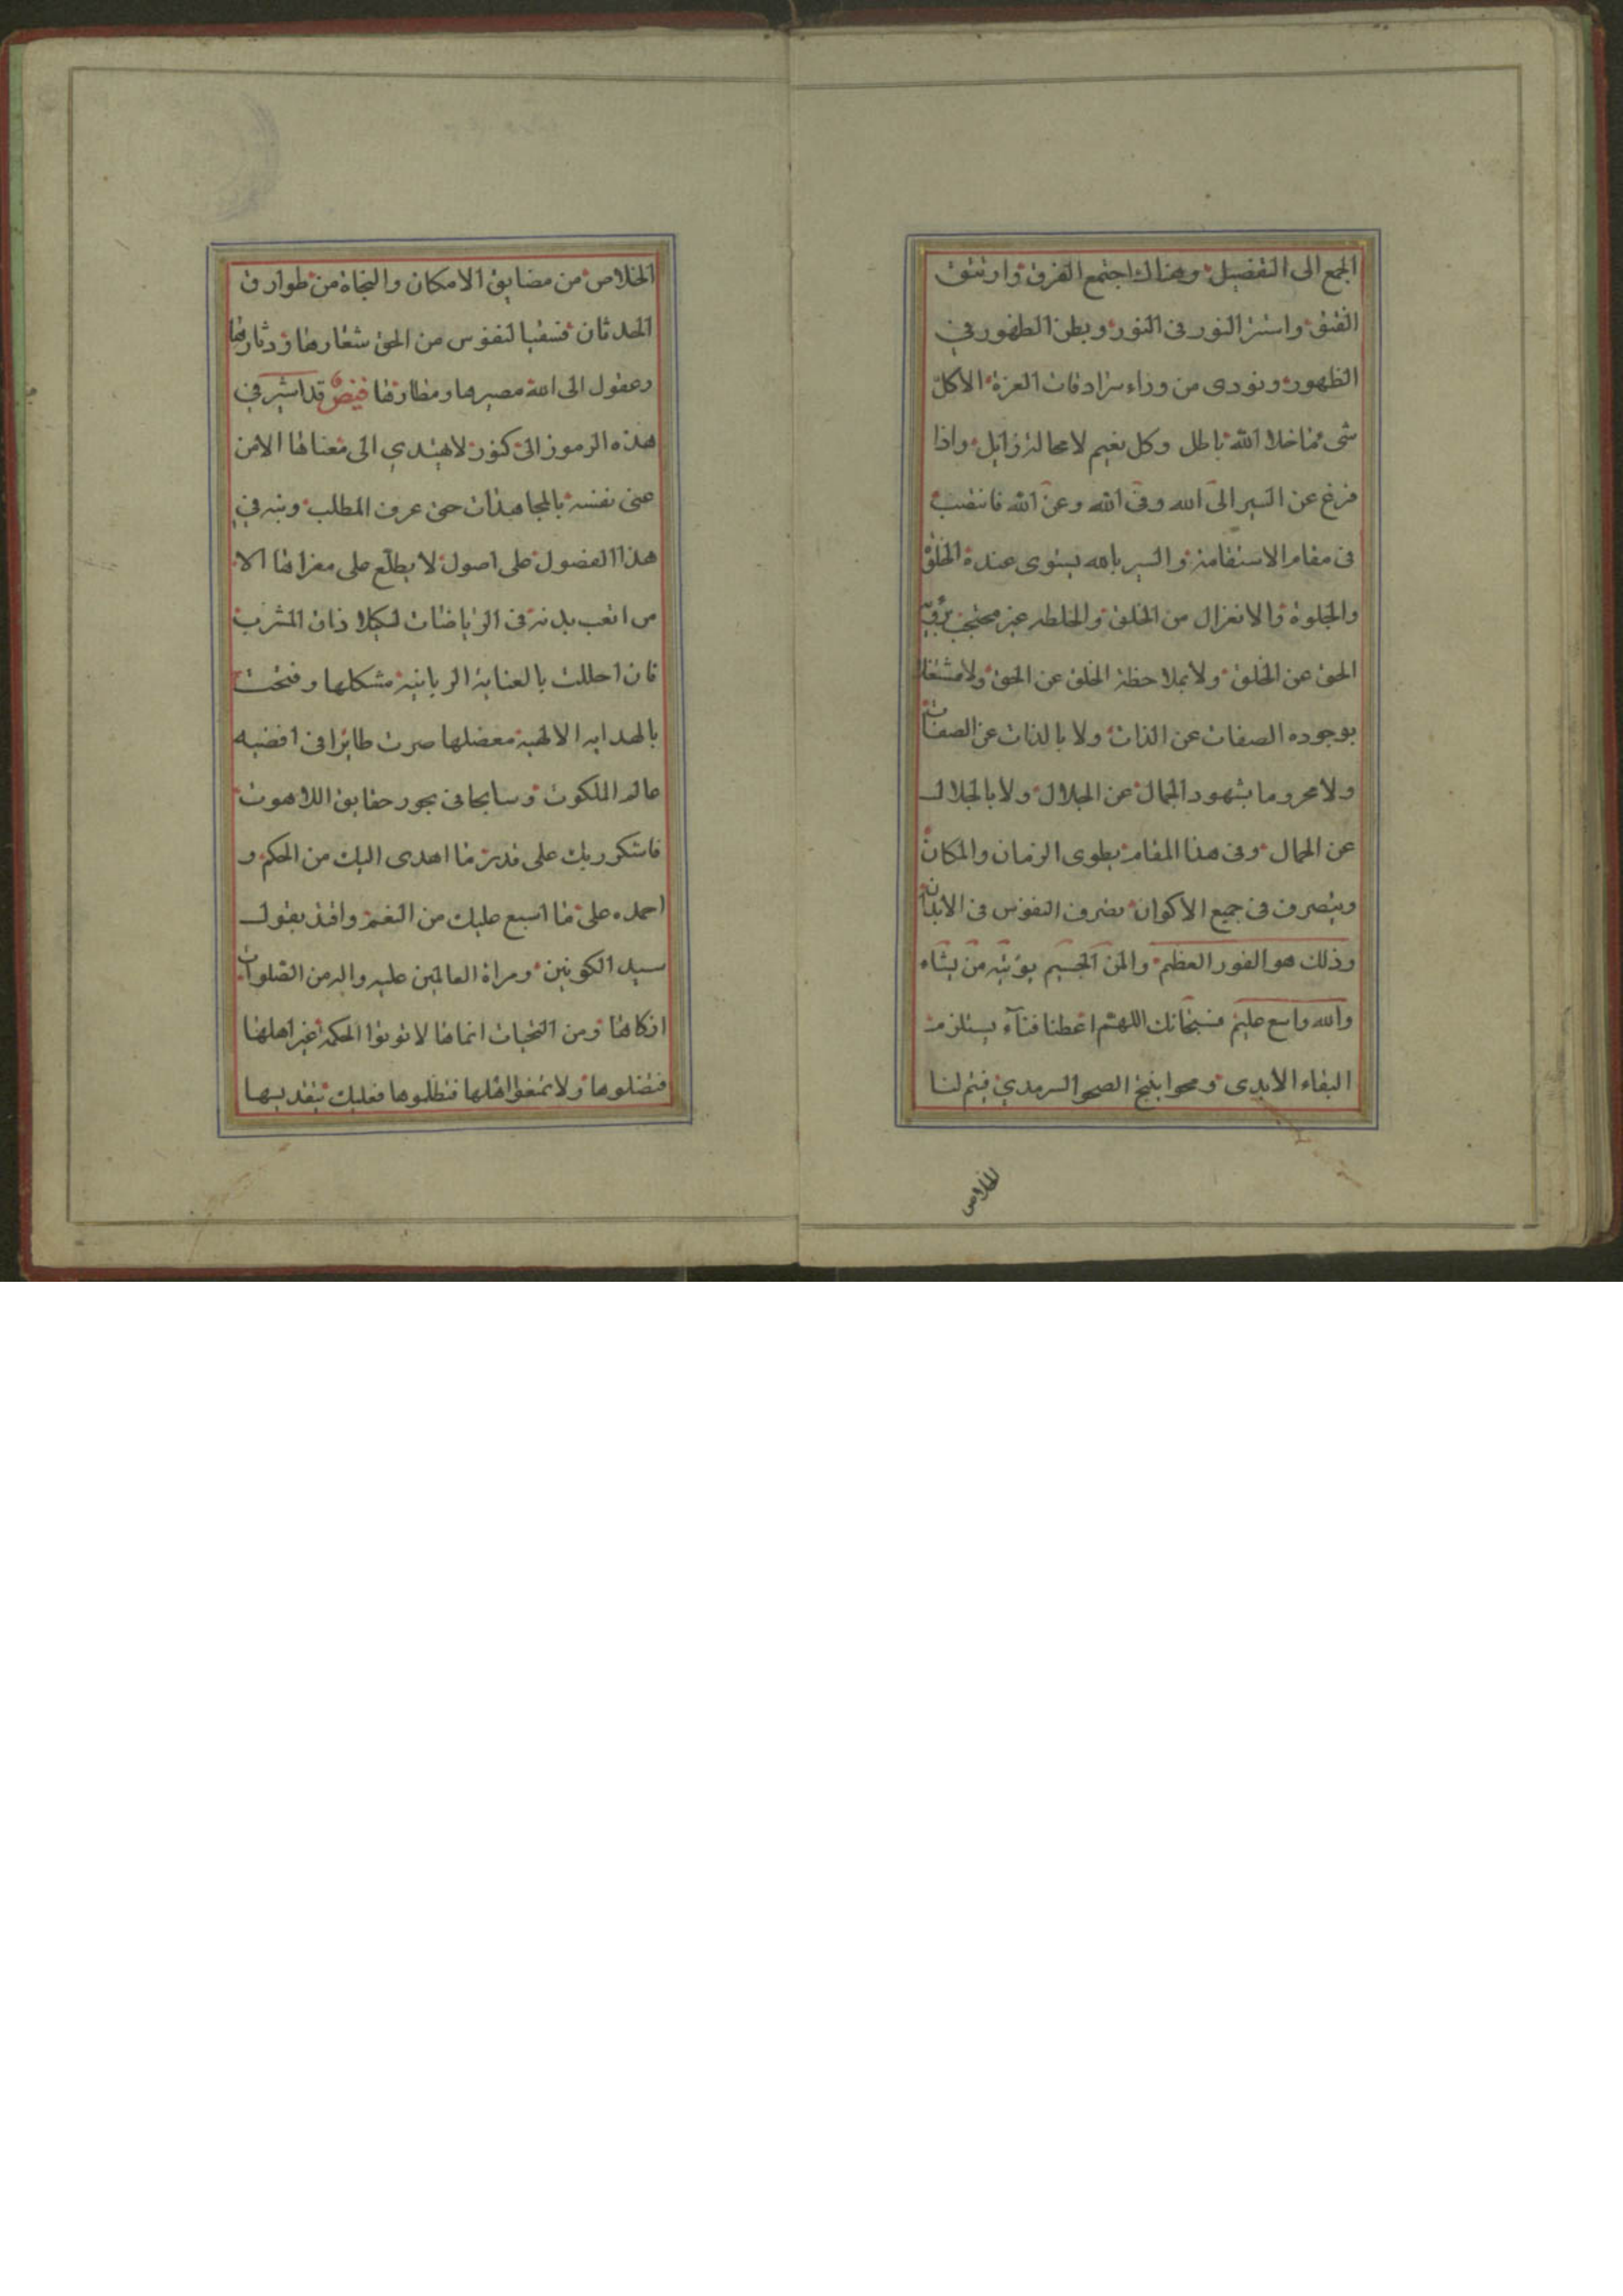 الجمع الى التفضيل وهنالك اجتمع الفرق وارتتق
الفتق واستتر النور فى النور وبطن الظهور فى
الظهور ونودى من وراء سرادقات العزة الاكل
شى ما خلا الله باطل وكل نعيم لا محالة زايل واذا
فرغ عن السير الى الله وفى الله وعن الله فانتصب
فى مقام الاستقامة والسير بالله يستوى عنده الخلق
والجلوة والانعزال من الخلق والخلطه غير محتجب برؤية
الحق عن الخلق ولا بملاحظة الخلق عن الحق ولا مشتغلا
بوجوده الصفات عن الذات ولا بالذات عن الصفات
ولا محروما بشهود الجمال عن الجلال ولا بالجلال
عن الجمال وفى هذا المقام يطوى الزمان والمكان
ويتصرف فى جميع الاكوان تصرف النفوس فى الابدان
وذلك هو الفوز العظيم والمن الجسيم يؤتيه من يشاء
والله واسع عليم فسبحانك اللهم اعطنا فناء يستلزم
البقاء الابدى ومحوا ينتج الصحو السرمدي فيتم لنا
الخلاص
الخلاص من مضايق الامكان والنجاة من طوارق
الحدثان فسقيا لنفوس من الحق شعارها ودثارها
وعقول الى الله مصيرها ومطارها فيض قد اشير في
هذه الرموز الى كنوز لا يهتدي الى معناها الا من
عنى نفسه بالمجاهدات حتى عرف المطلب ونبه في
هذا الفصول على اصول لا يطلع على مغزاها الا
من اتعب بدنه فى الرياضات لكيلا ذاق المشرب
فان احللت بالعناية الربانية مشكلها وفتحت
بالهدايه الالهية معضلها صرت طايرا فى افضيه
عالم الملكوت وسابحا فى بحور حقايق اللاهوت
فاشكر ربك على قدر ما اهدى اليك من الحكم و
احمده على ما اسبع عليك من النعم واقتد بقول
سيد الكونين ومراة العالمين عليه واله من الصلوات
ازكاها ومن التحيات انماها لا توتوا الحكمه غير اهلها
فتضلوها ولا تمنعوا اهلها فتظلموها فعليك بتقديسها